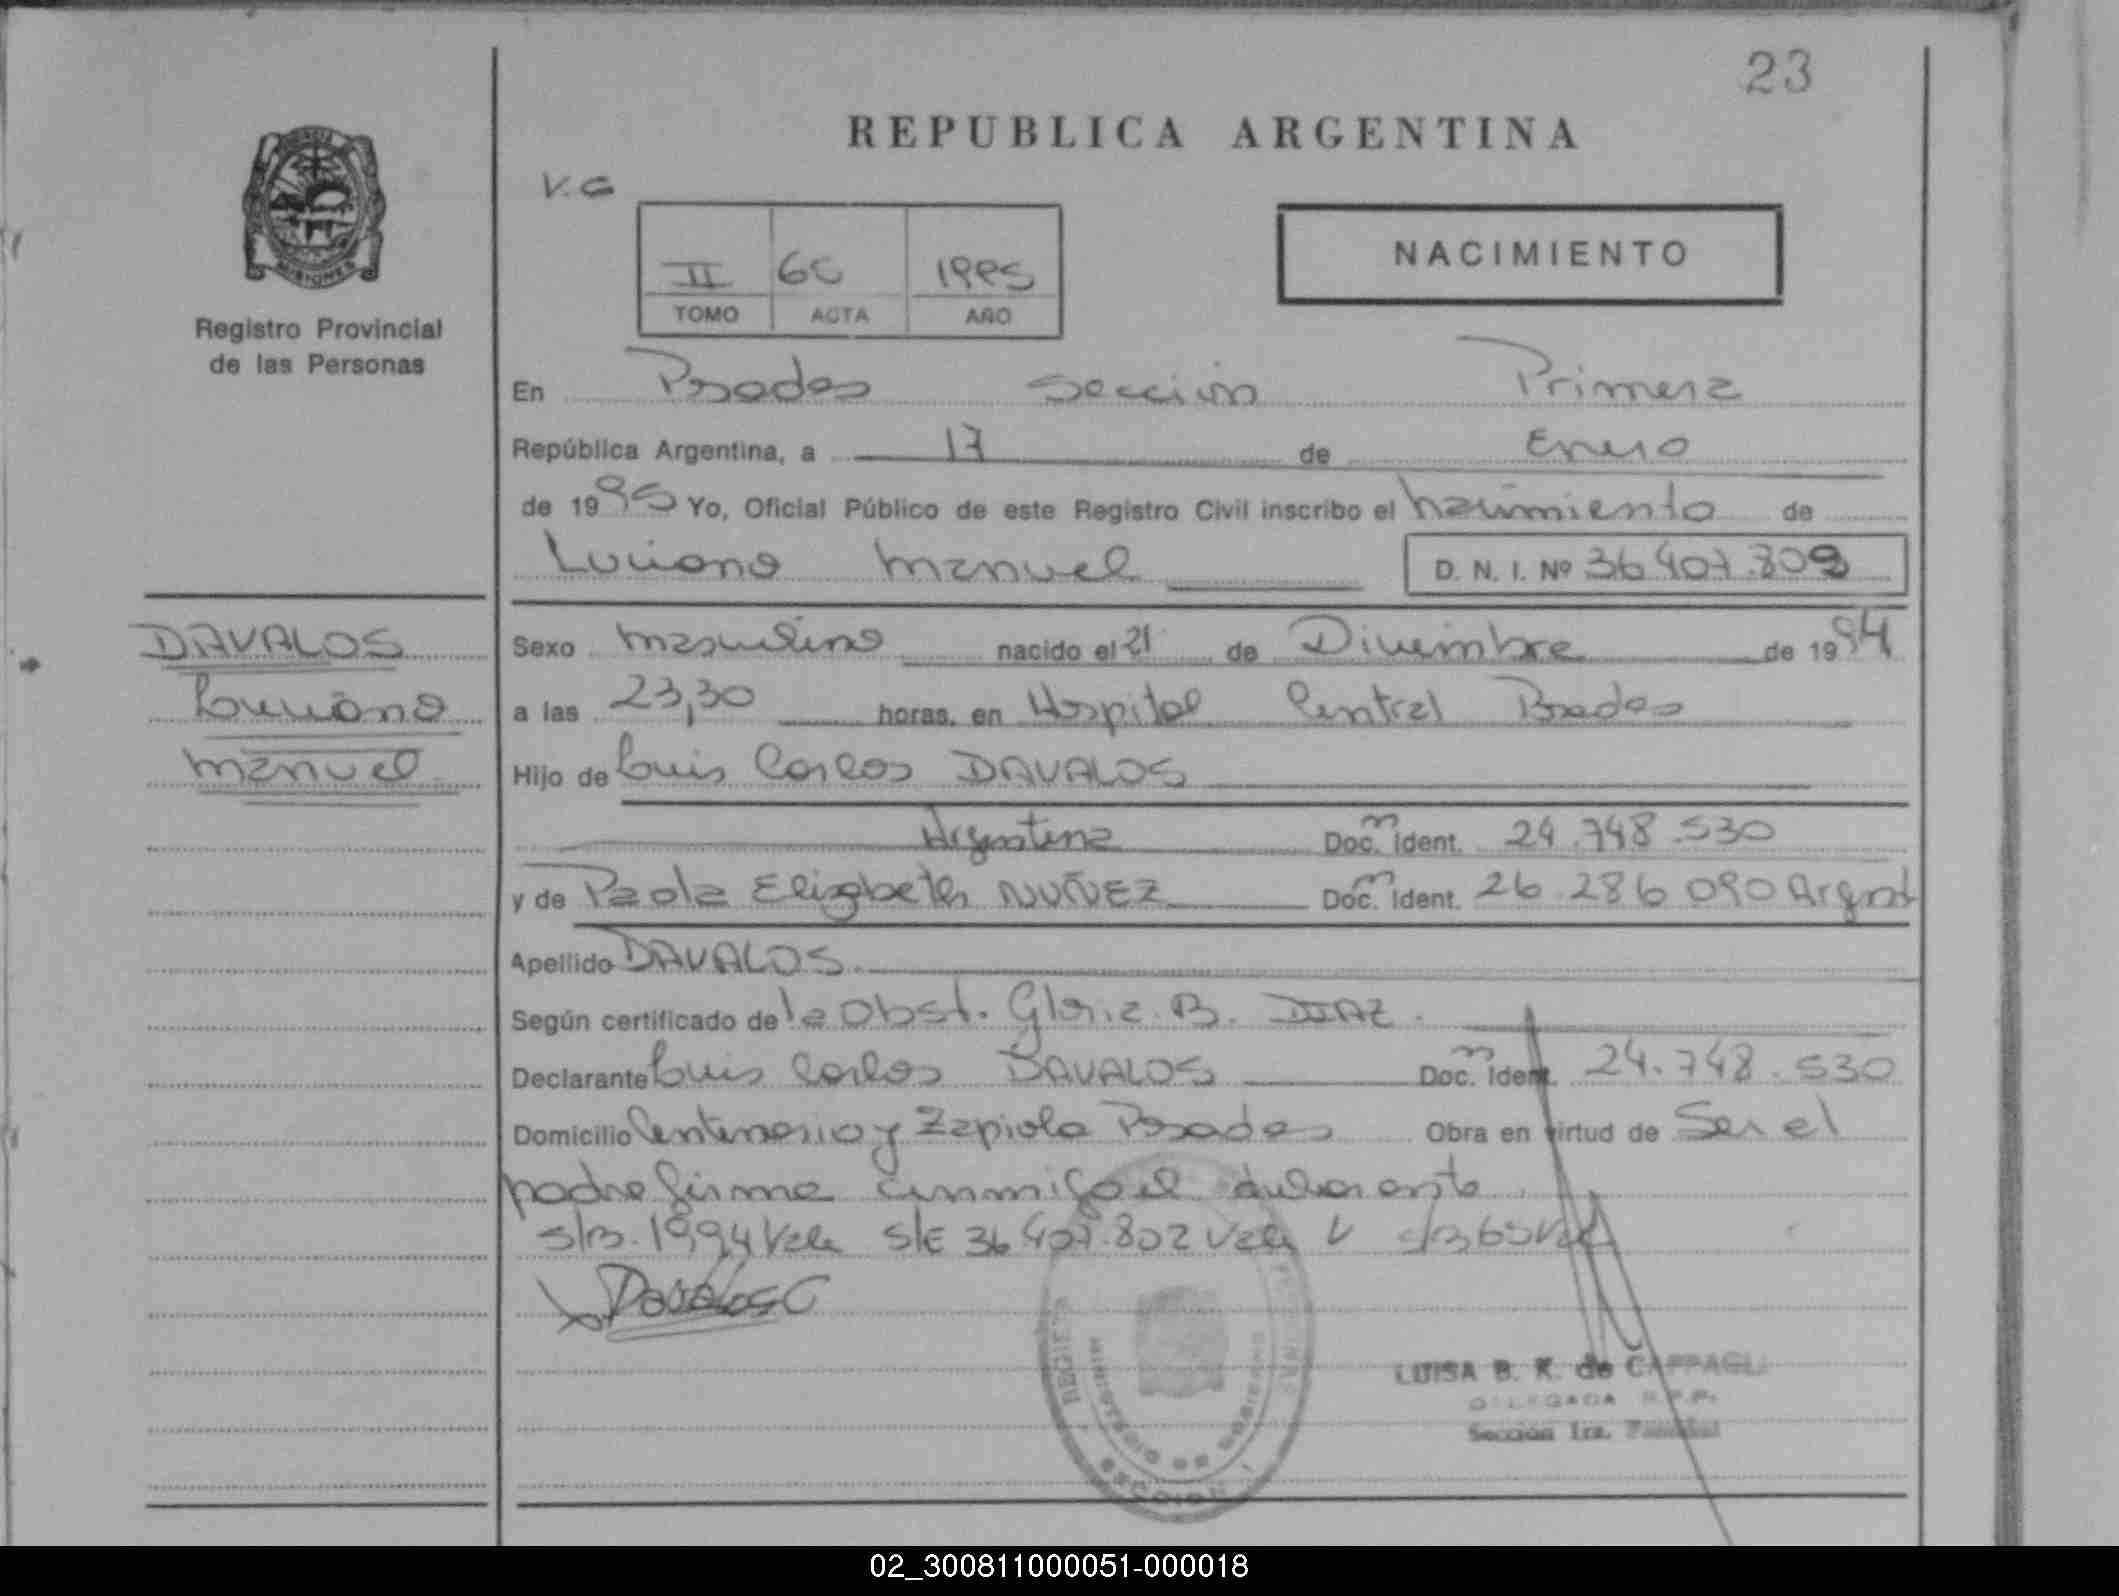 23
REPUBLICA ARGENTINA
V.G
NACIMIENTO
II 60 1995
TOMO ACTA AÑO
MISIONES
Registro Provincial
de las Personas
En Posadas Sección Primera
República Argentina, a 17 de Enero
de 1995 Yo, Oficial Público de este Registro Civil inscribo el nacimiento de
Luciano Manuel D. N. I. Nº 36 407.802
DAVALOS
Luciano
Manuel
Sexo Masculino nacido el 21 de Diciembre de 1994
a las 23,30 horas, en Hospital Central Posadas
Hijo de Luis Carlos DAVALOS
Argentina Doc. Ident. 24.748.530
y de Paola Elizabeth NUÑEZ Doc. Ident. 26.286 090 Argent
Apellido DAVALOS
Según certificado de la Obst. Gloria B. DIAZ.
Declarante Luis Carlos DAVALOS Doc. Ident. 24.748.530
Domicilio Centenario y Zapiola Posadas Obra en virtud de Ser el
padre firma conmigo el declarante
s/b. 1994 Vale S/E 36 407.802 Vale
Davalos C
LUISA B. K. de CAPPAGLI
DELEGADA R.P.P.
Sección 1ra.
MINISTERIO DE GOBIERNO
SECCION 1
02_300811000051-000018